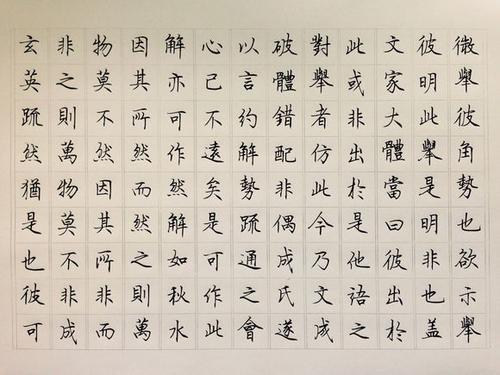 微舉彼角勢也欲示舉
彼明此舉是明非也蓋
文家大體當曰彼出於
此或非出於是他語之
對舉者仿此今乃文成
破體錯配非偶成氏遂
以言約解勢疏通之會
心己不遠矣是可作此
解亦可作然解如秋水
因其所然而然之則萬
物莫不然因其所非而
非之則萬物莫不非成
玄英疏然猶是也彼可